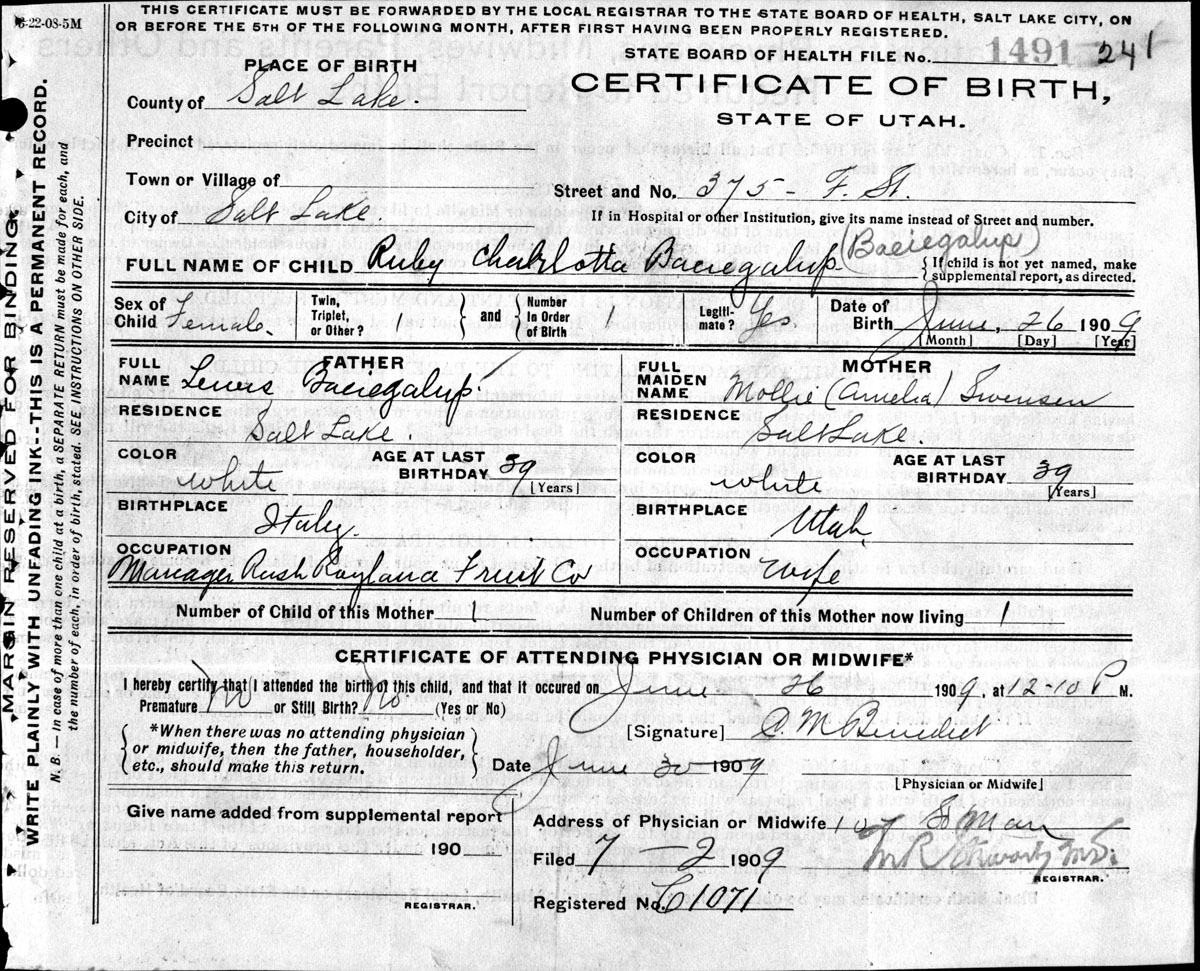 6-22-08-5M
THIS CERTIFICATE MUST BE FORWARDED BY THE LOCAL REGISTRAR TO THE STATE BOARD OF HEALTH, SALT LAKE CITY, ON
OR BEFORE THE 5TH OF THE FOLLOWING MONTH, AFTER FIRST HAVING BEEN PROPERLY REGISTERED.
STATE BOARD OF HEALTH FILE No. 1491 241
PLACE OF BIRTH
CERTIFICATE OF BIRTH,
STATE OF UTAH.
County of Salt Lake.
Precinct
Town or Village of
Street and No. 375 - F. St.
City of Salt Lake.
If in Hospital or other Institution, give its name instead of Street and number.
(Baciegalup)
FULL NAME OF CHILD Ruby Charlotta Baciegalup
{ If child is not yet named, make
supplemental report, as directed.
Sex of Child Female.
Twin, Triplet, or Other? 1 } and { Number In Order of Birth 1
Legiti-mate? Yes
Date of Birth June 26 1909
[Month] [Day] [Year]
FATHER
FULL NAME Lewis Baciegalup.
RESIDENCE
Salt Lake.
COLOR white
AGE AT LAST BIRTHDAY 39 [Years]
BIRTHPLACE Italy
OCCUPATION
Manager Rush Raylance Fruit Co
MOTHER
FULL MAIDEN NAME Mollie (Amelia) Swensen
RESIDENCE
Salt Lake.
COLOR white
AGE AT LAST BIRTHDAY 39 [Years]
BIRTHPLACE Utah
OCCUPATION Wife
Number of Child of this Mother 1
Number of Children of this Mother now living 1
CERTIFICATE OF ATTENDING PHYSICIAN OR MIDWIFE*
I hereby certify that I attended the birth of this child, and that it occured on June 26 1909, at 12-10 P M.
Premature No or Still Birth? No. (Yes or No)
{ *When there was no attending physician
or midwife, then the father, householder,
etc., should make this return. }
[Signature] C M Benedict
Date June 30 1909
[Physician or Midwife]
Give name added from supplemental report
190
REGISTRAR.
Address of Physician or Midwife 107 So Main
Filed 7 - 2 1909
REGISTRAR.
Registered No. C1071
MARGIN RESERVED FOR BINDING.
WRITE PLAINLY WITH UNFADING INK--THIS IS A PERMANENT RECORD.
N. B. — In case of more than one child at a birth, a SEPARATE RETURN must be made for each, and
the number of each, in order of birth, stated. SEE INSTRUCTIONS ON OTHER SIDE.